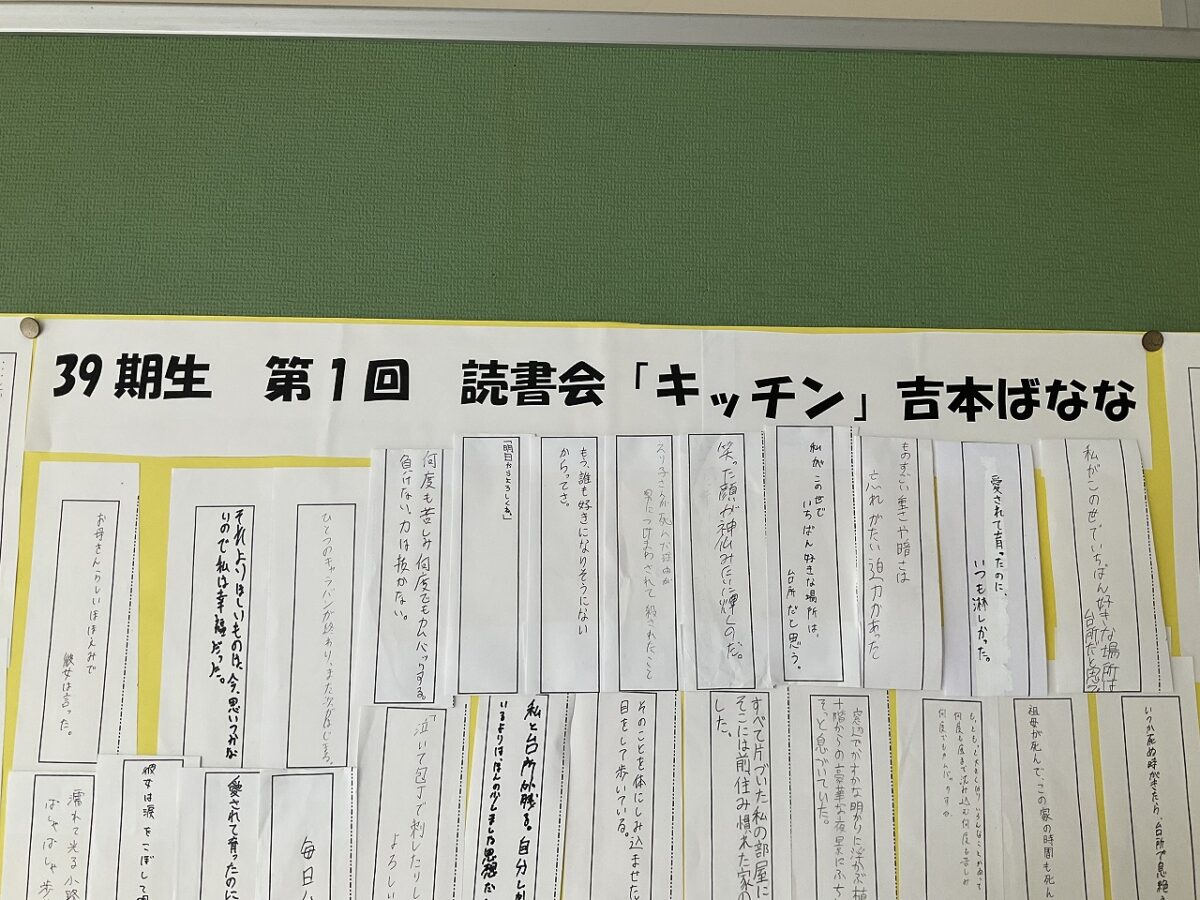 39期生　第1回　読書会「キッチン」吉本ばなな
私がこの世でいちばん好きな場所は
台所だと思う
愛されて育ったのに、
いつも淋しかった。
ものすごい重さや暗さは
忘れがたい迫力があった
私がこの世で
いちばん好きな場所は、
台所だと思う。
笑った顔が神仏みたいに輝くのだ。
男につけまわされて 殺されたこと
もう、誰も好きになりそうにない
からってさ。
「明日からよろしくね。」
何度も苦しみ何度でもカムバックする。
負けない力は抜かない。
ひとつのキャラバンが終わり、また次がはじまる。
それよりほしいものは、今、思いつかな
いので私は幸福だった。
お母さんらしいほほえみで
彼女は言った。
いつか死ぬ時がきたら、台所で息絶
祖母が死んで、この家の時間も死ん
窓辺でかすかな明かりに浮かぶ植
十階からの豪華な夜景にふち
そっと息づいていた。
すべて片づいた私の部屋に
そこには前、住み慣れた家の
した。
そのことを体にしみ込ませた
目をして歩いている。
私と台所が残る。自分し
いるよりは、ほんの少しました思想だ
「泣いて包丁で刺したりし
よろしい
毎日
愛されて育ったのに
彼女は涙をこぼして
濡れて光る小路
ばしゃばしゃ歩